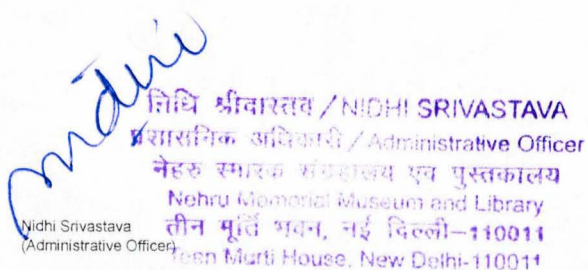 nidhi
निधि श्रीवास्तव / NIDHI SRIVASTAVA
प्रशासनिक अधिकारी / Administrative Officer
नेहरू स्मारक संग्रहालय एवं पुस्तकालय
Nehru Memorial Museum and Library
तीन मूर्ति भवन, नई दिल्ली-110011
Teen Murti House, New Delhi-110011
Nidhi Srivastava
(Administrative Officer)